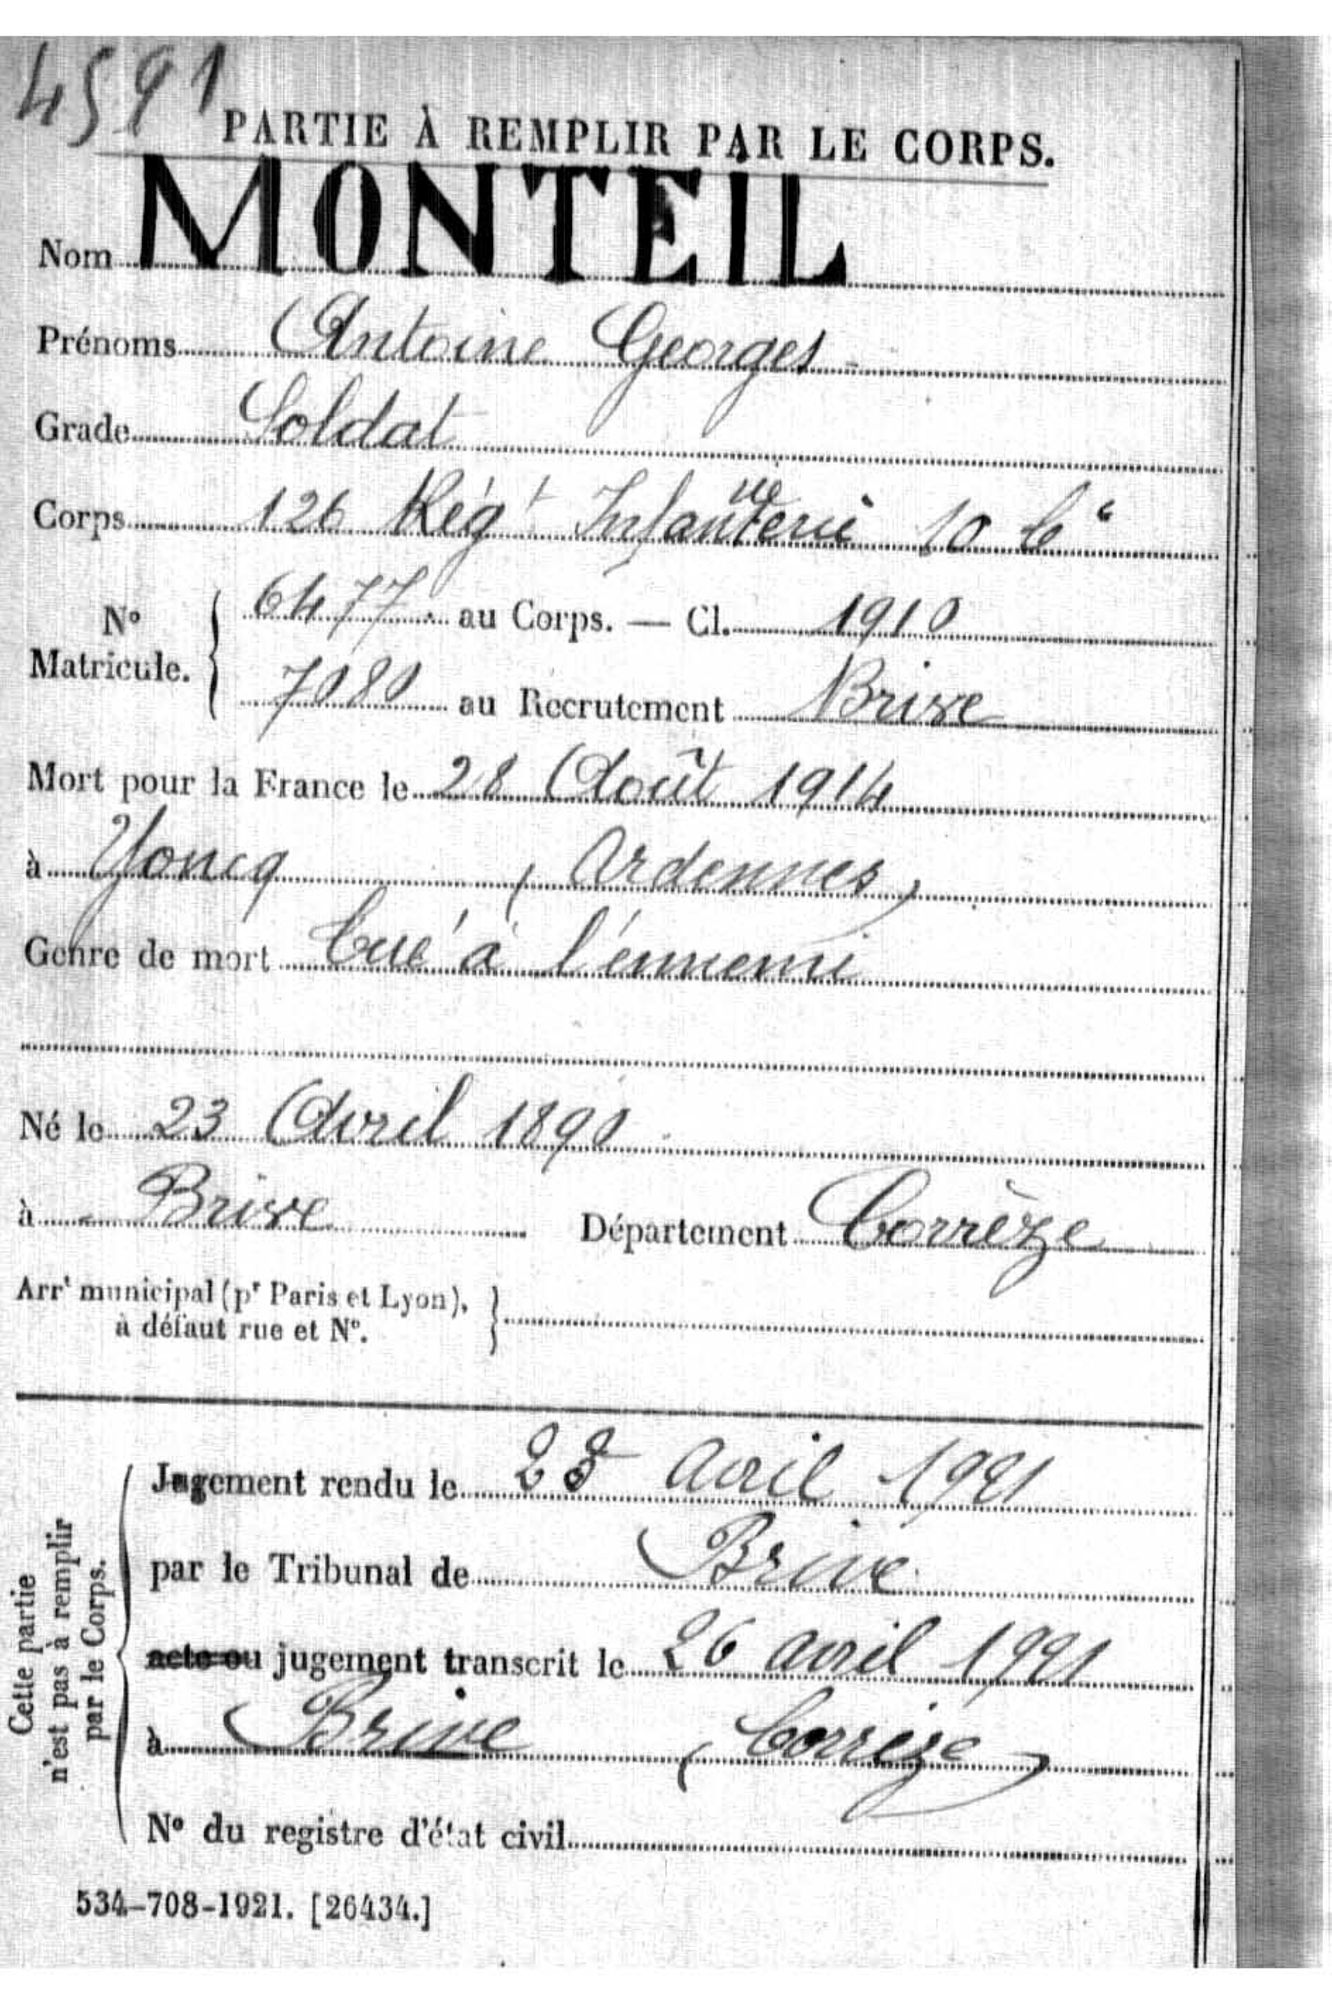 4591
PARTIE À REMPLIR PAR LE CORPS.
Nom MONTEIL
Prénoms Antoine Georges
Grade Soldat
Corps 126 Régt Infanterie 10 Cie
N° Matricule. { 6477 au Corps. — Cl. 1910
7080 au Recrutement Brive
Mort pour la France le 28 Août 1914
à Yoncq (Ardennes)
Genre de mort Tué à l'ennemi
Né le 23 Avril 1890
à Brive Département Corrèze
Arrt municipal (pr Paris et Lyon), à défaut rue et N°.
Cette partie n'est pas à remplir par le Corps.
Jugement rendu le avril 1921
par le Tribunal de Brive
acte ou jugement transcrit le 26 avril 1921
à Brive (Corrèze)
N° du registre d'état civil
534-708-1921. [26434.]